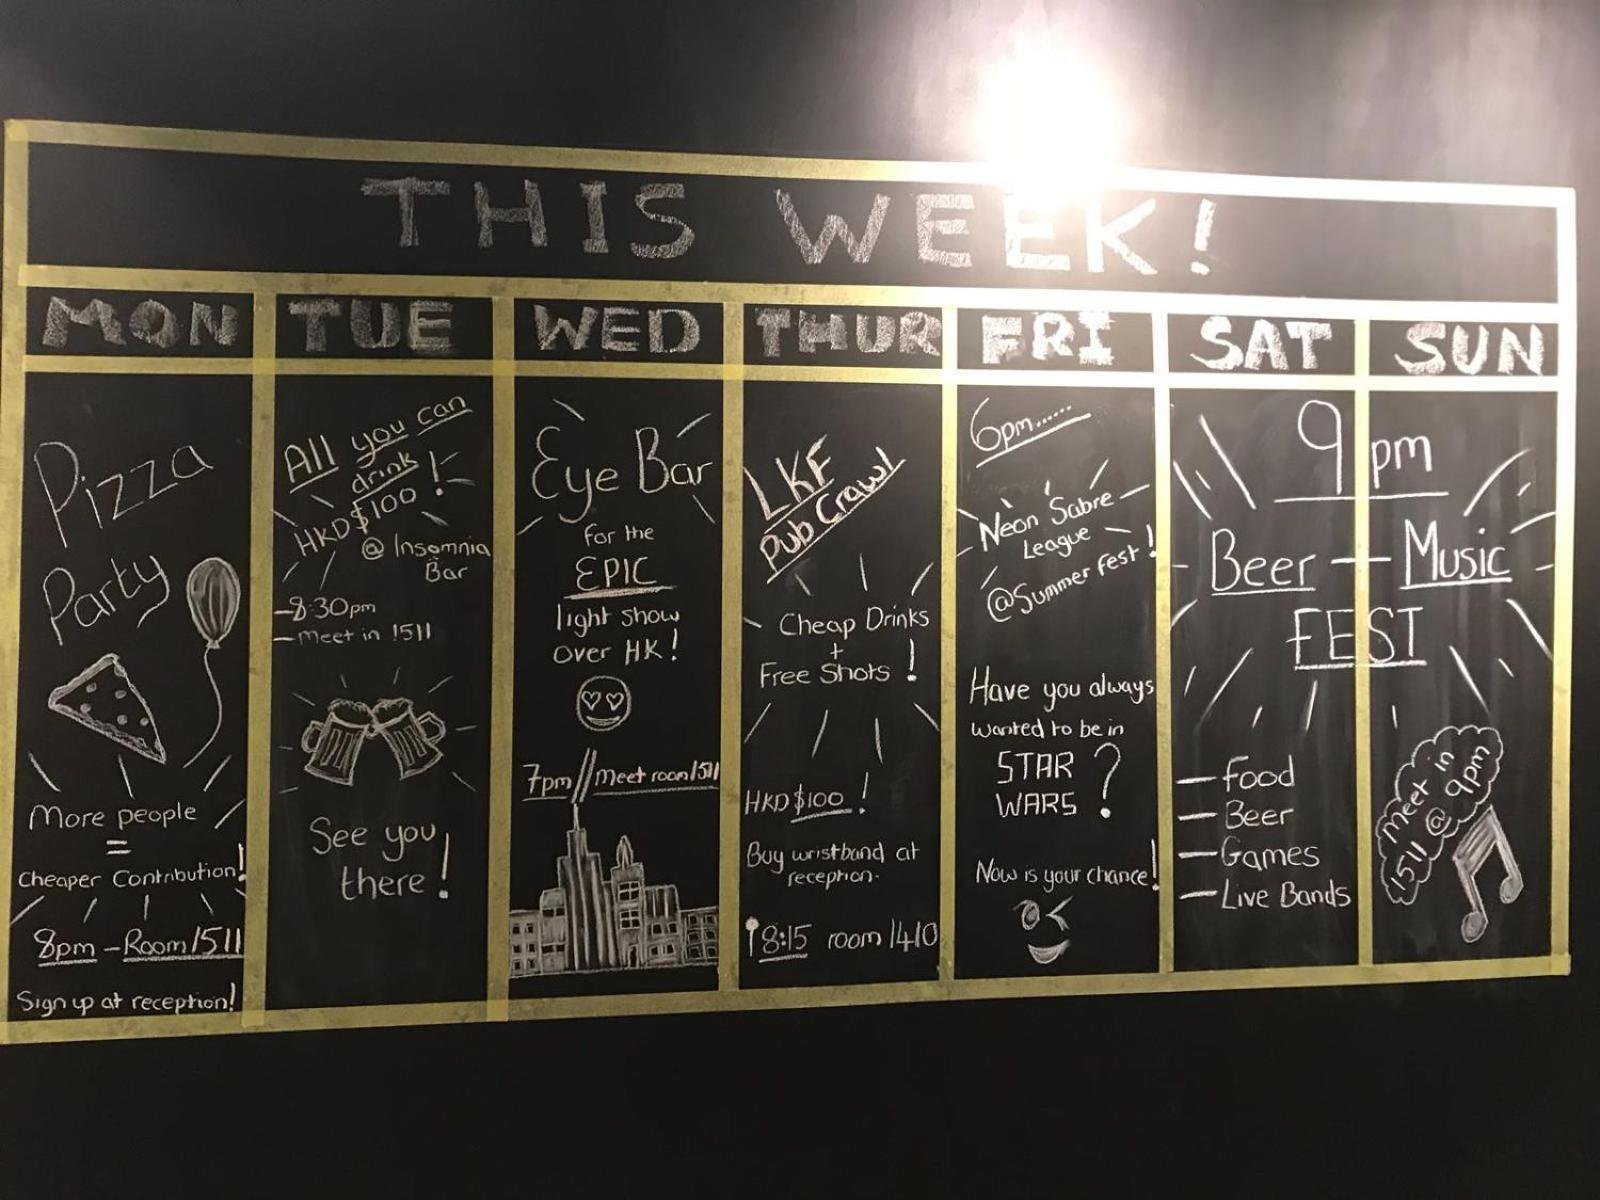 THIS WEEK!
MON
Pizza
Party
More people
=
Cheaper Contribution!
8pm - Room 1511
Sign up at reception!
TUE
All you can
drink
HKD$100 !
@ Insomnia
Bar
-8:30pm
-Meet in 1511
See you
there!
WED
Eye Bar
for the
EPIC
light show
over HK!
7pm // Meet room 1511
THUR
LKF
Pub Crawl
Cheap Drinks
+
Free Shots!
HKD$100!
Buy wristband at
reception.
8:15 room 1410
FRI
6pm......
Neon Sabre
League
@Summer fest!
Have you always
wanted to be in
STAR
WARS ?
Now is your chance!
SAT SUN
9pm
Beer - Music
FEST
- Food
- Beer
- Games
- Live Bands
Meet in
1511 @ 9pm